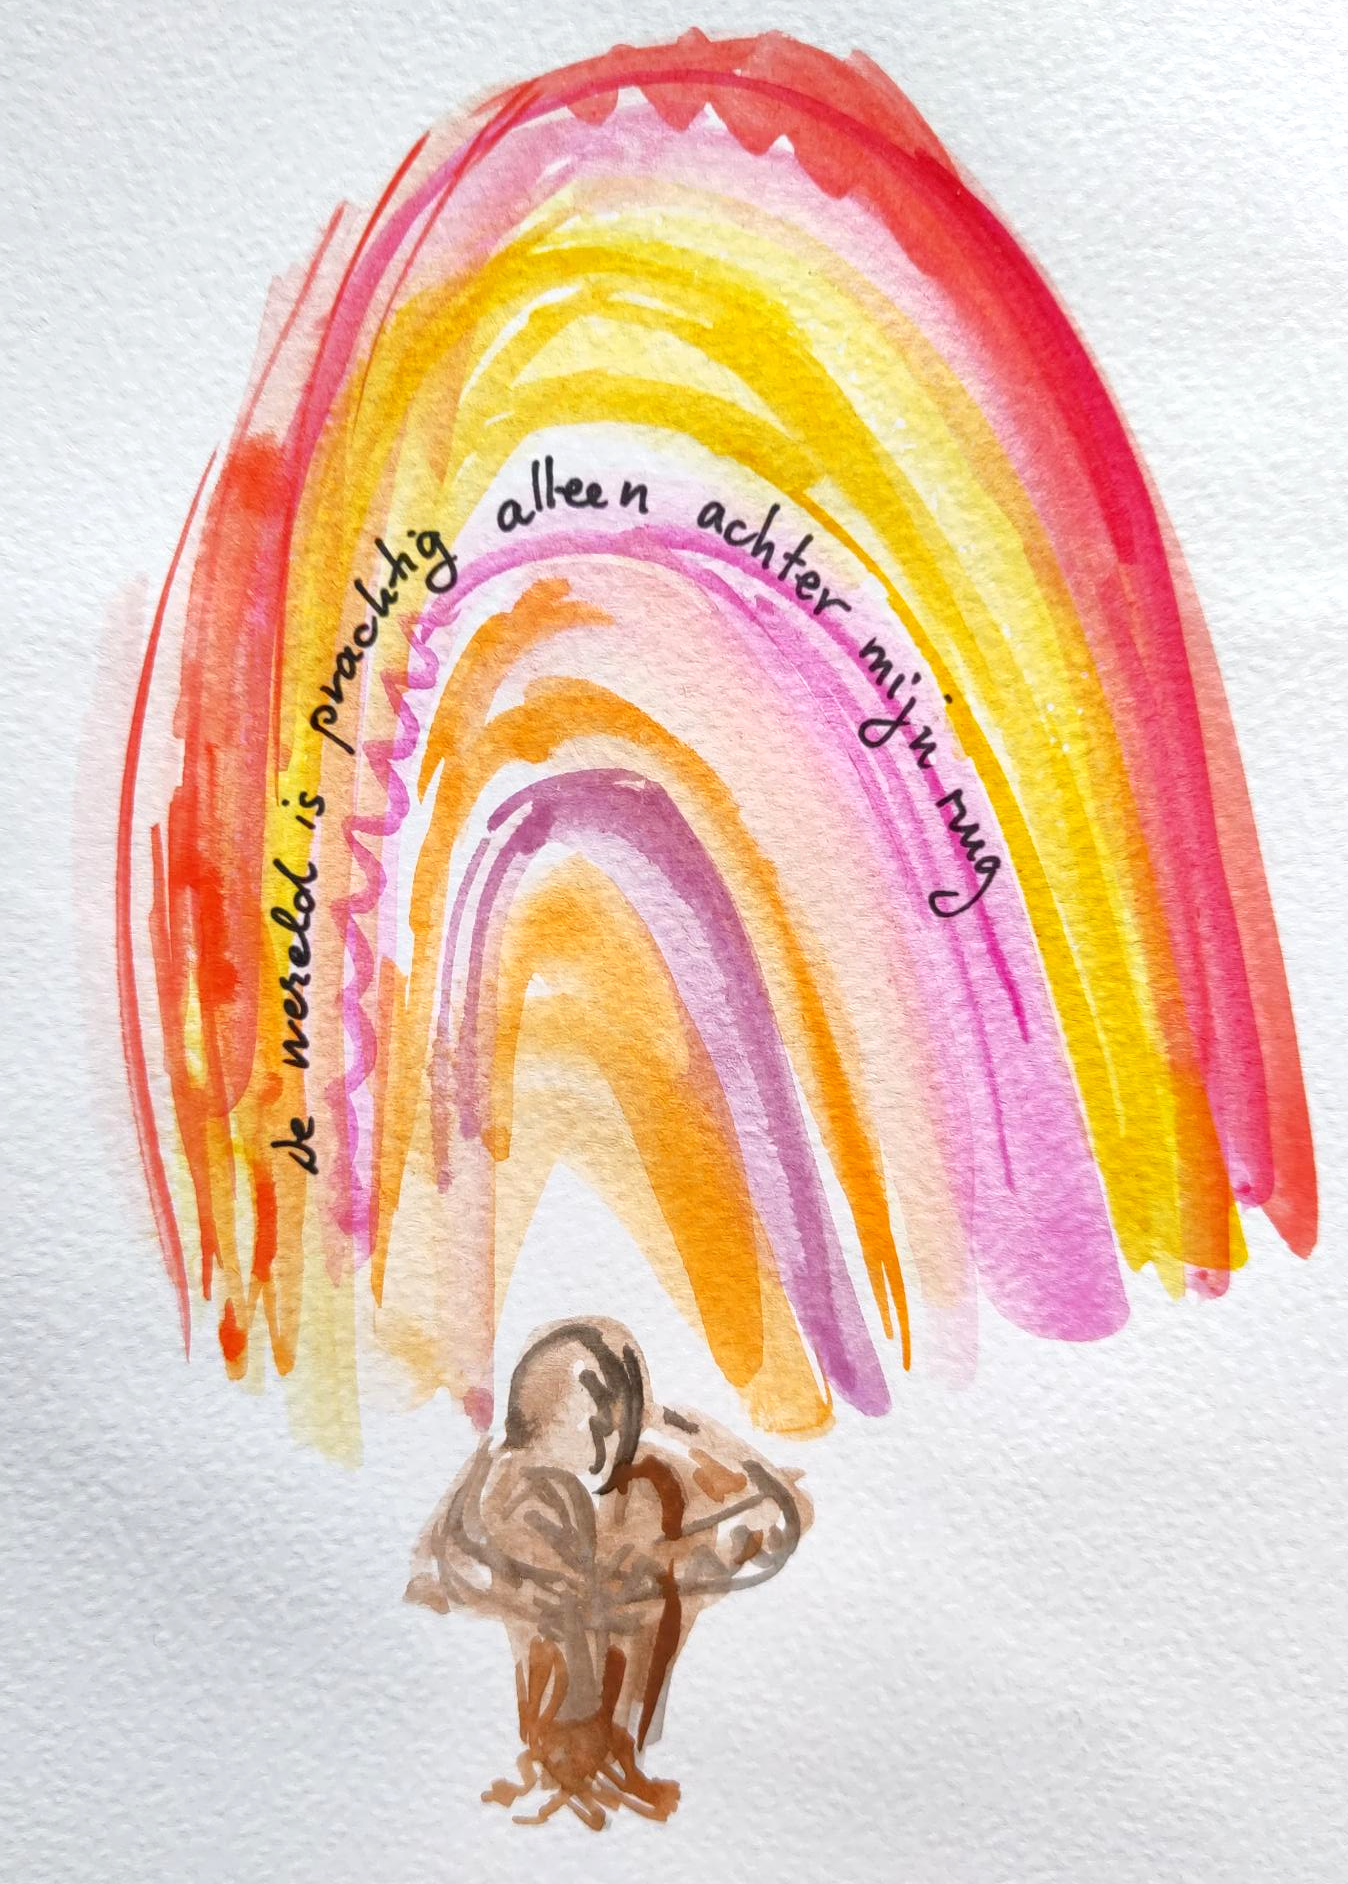 De wereld is prachtig alleen achter mijn rug